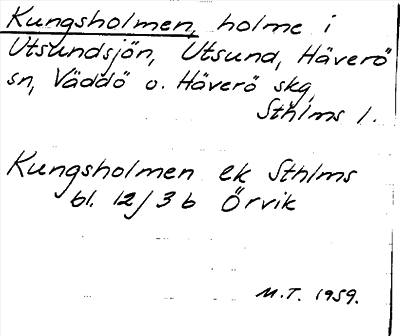 Kungsholmen, holme i
Utsundsjön, Utsund, Häverö
sn, Väddö o. Häverö skg,
Sthlms l.
Kungsholmen ek Sthlms
bl. 12/3 b Örvik
M.T. 1959.